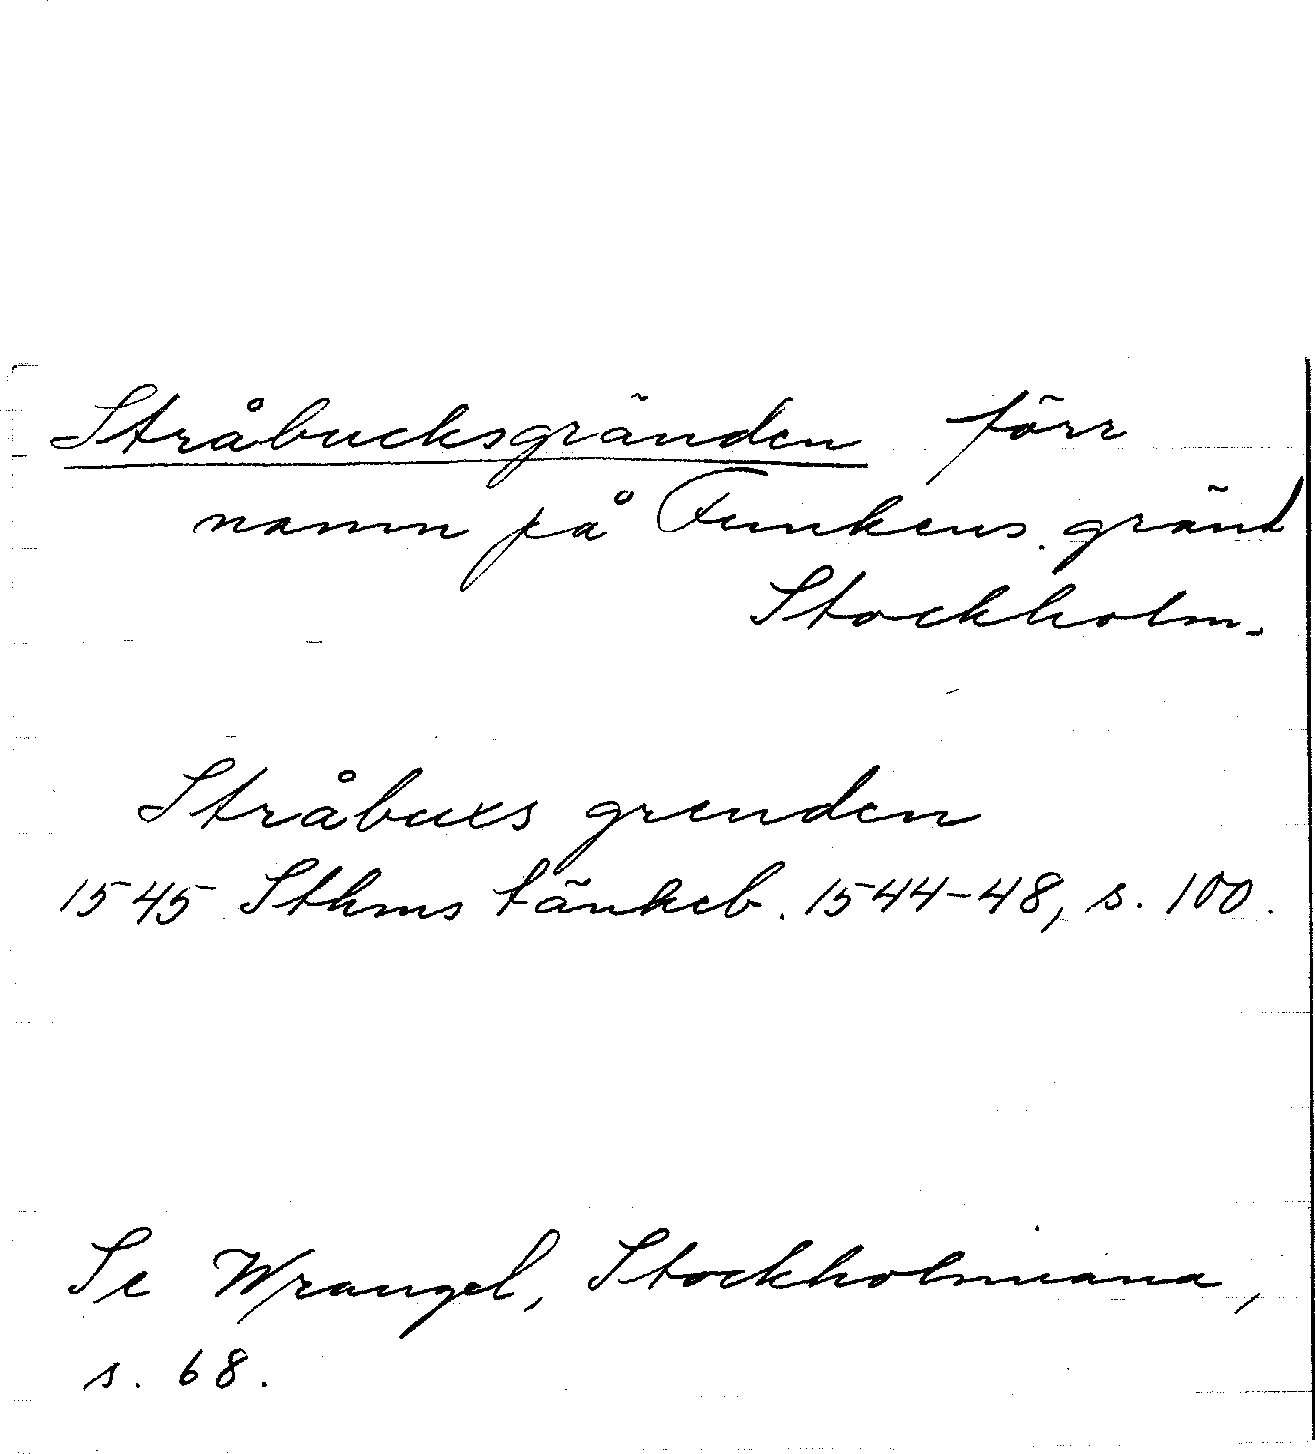 Stråbucksgränden förr
namn på Funkens gränd
Stockholm.
Stråbuxs grenden
1545 Sthms tänkeb. 1544-48, s. 100.
Se Wrangel, Stockholmiana,
s. 68.